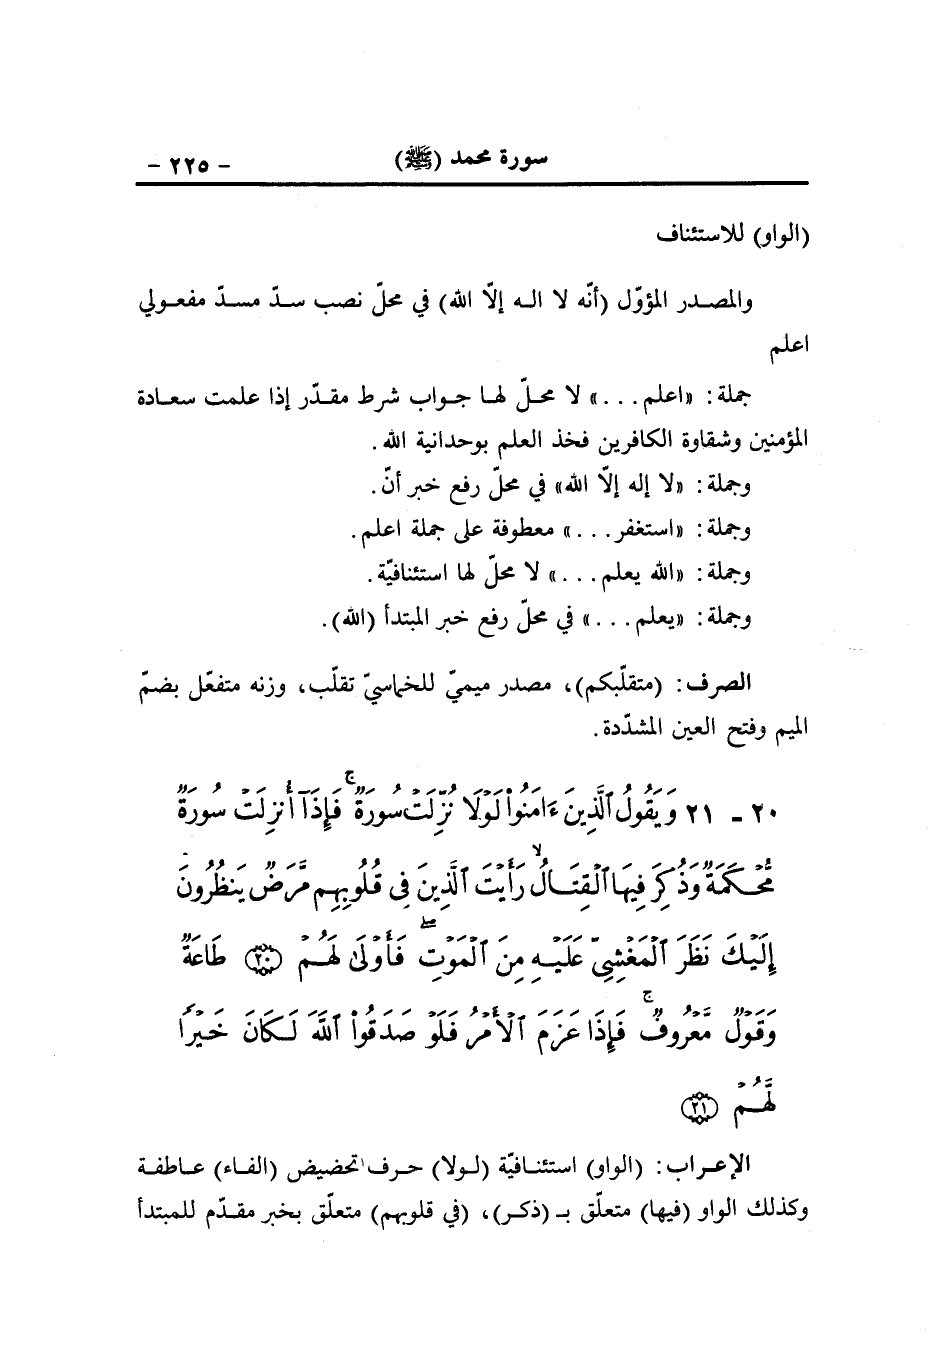 سورة محمد (ﷺ) - ٢٢٥ -
(الواو) للاستئناف
والمصدر المؤوّل (أنّه لا اله إلّا الله) في محلّ نصب سدّ مسدّ مفعولي
اعلم
جملة: «اعلم...» لا محلّ لها جواب شرط مقدّر إذا علمت سعادة
المؤمنين وشقاوة الكافرين فخذ العلم بوحدانية الله.
وجملة: «لا إله إلّا الله» في محلّ رفع خبر أنّ.
وجملة: «استغفر...» معطوفة على جملة اعلم.
وجملة: «الله يعلم...» لا محلّ لها استئنافيّة.
وجملة: «يعلم...» في محلّ رفع خبر المبتدأ (الله).
الصرف: (متقلّبكم)، مصدر ميميّ للخماسيّ تقلّب، وزنه متفعّل بضمّ
الميم وفتح العين المشدّدة.
٢٠ - ٢١ وَيَقُولُ ٱلَّذِينَ ءَامَنُوا۟ لَوْلَا نُزِّلَتْ سُورَةٌ ۖ فَإِذَآ أُنزِلَتْ سُورَةٌ
مُّحْكَمَةٌ وَذُكِرَ فِيهَا ٱلْقِتَالُ ۙ رَأَيْتَ ٱلَّذِينَ فِى قُلُوبِهِم مَّرَضٌ يَنظُرُونَ
إِلَيْكَ نَظَرَ ٱلْمَغْشِىِّ عَلَيْهِ مِنَ ٱلْمَوْتِ ۖ فَأَوْلَىٰ لَهُمْ ﴿٢٠﴾ طَاعَةٌ
وَقَوْلٌ مَّعْرُوفٌ ۚ فَإِذَا عَزَمَ ٱلْأَمْرُ فَلَوْ صَدَقُوا۟ ٱللَّهَ لَكَانَ خَيْرًا
لَّهُمْ ﴿٢١﴾
الإعراب: (الواو) استئنافيّة (لولا) حرف تحضيض (الفاء) عاطفة
وكذلك الواو (فيها) متعلّق بـ (ذكر)، (في قلوبهم) متعلّق بخبر مقدّم للمبتدأ